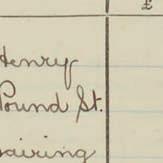 £
Henry
Pound St.
airing